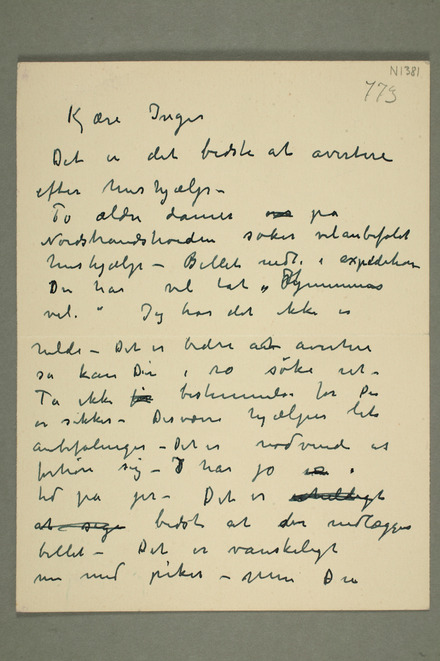 N1381
779
Kjære Inger
Det er det bedste at avertere
efter hushjælp –
To ældre damer paa
Nordstrandshøiden søker velanbefalet
hushjælp – Billet nedl. i expeditionen
Du har vel tat "Hjemmenes
vel." Jeg har det ikke
Det er bedre at avertere
saa kan Du i ro søke ut –
Ta ikke bestemmelse før Du
er sikker – Desværre hjælper lite
anbefalinger – Det er nødvend at
forhøre sig – I har jo
tid paa jer – Det er uheldigt
at sige bedst at der nedlægges
billet – Det er vanskeligt
nu med piker – Men Du